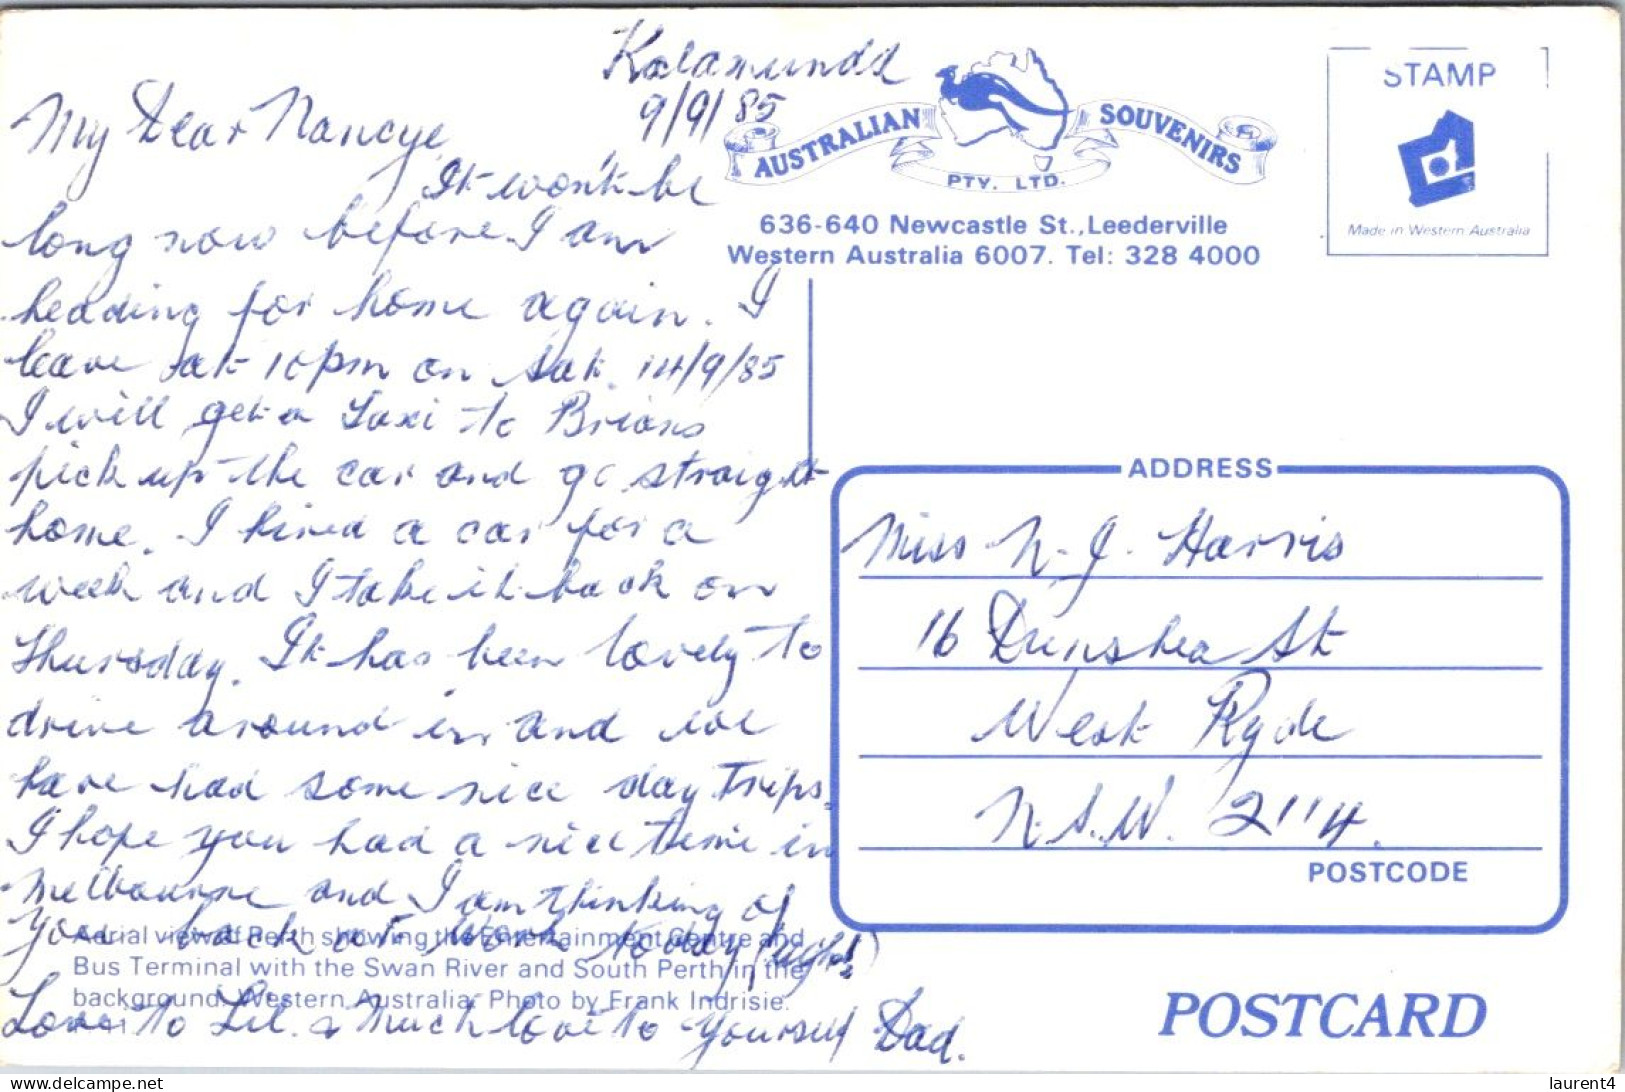 Kalamunda
9/9/85
My Dear Nancye,
It won't be
long now before I am
heading for home again. I
leave at 10pm on Sat. 14/9/85
I will get a Taxi to Brians
pick up the car and go straight
home. I hired a car for a
week and I take it back on
Thursday. It has been lovely to
drive around in and we
have had some nice day trips.
I hope you had a nice time in
Melbourne and I am thinking of
you back at work today (ugh!)
Love to Lil. & Much love to yourself Dad.
Aerial view of Perth showing the Entertainment Centre and
Bus Terminal with the Swan River and South Perth in the
background. Western Australia. Photo by Frank Indrisie.
AUSTRALIAN SOUVENIRS
PTY. LTD.
636-640 Newcastle St., Leederville
Western Australia 6007. Tel: 328 4000
STAMP
Made in Western Australia
ADDRESS
Miss N. J. Harris
16 Dunshea St
West Ryde
N.S.W. 2114.
POSTCODE
POSTCARD
laurent4